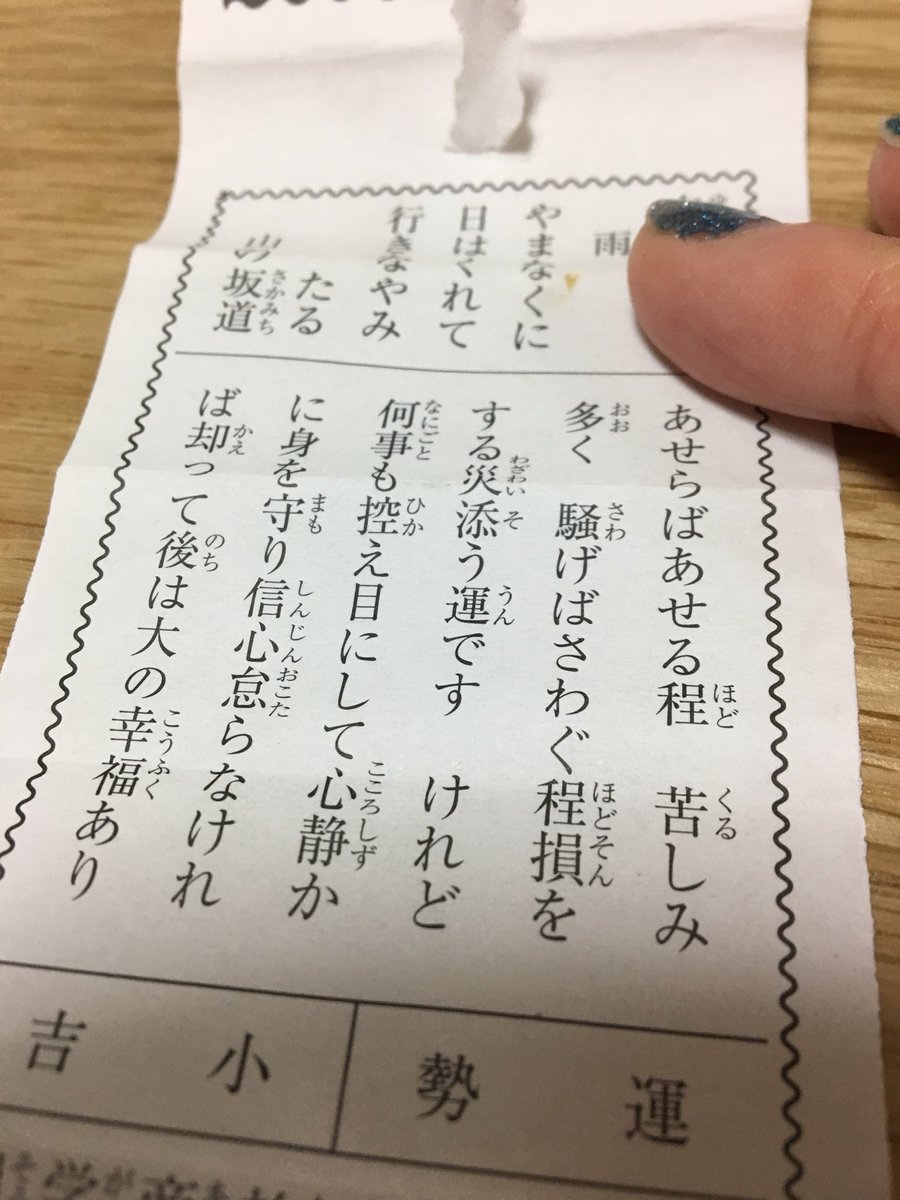 雨
やまなくに
日はくれて
行きなやみ
たる
坂道
あせらばあせる程 苦しみ
多く 騒げばさわぐ程損を
する災添う運です けれど
何事も控え目にして心静か
に身を守り信心怠らなけれ
ば却って後は大の幸福あり
運勢 小吉